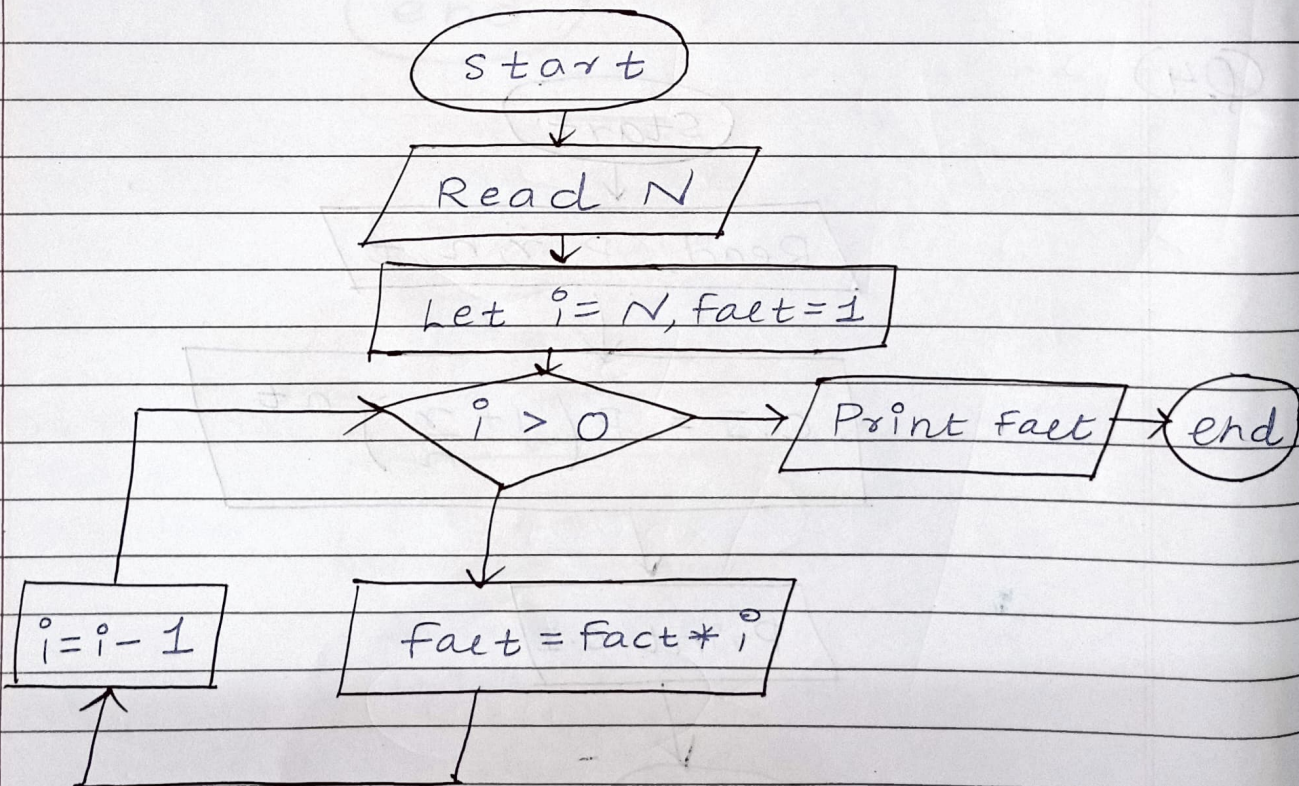 start
Read N
Let i = N, fact = 1
i > 0
Print fact
end
i = i - 1
fact = fact * i